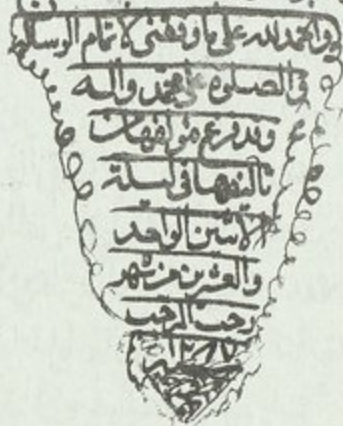 والحمد لله على ما وفقنى لاتمام الرسالة
والصلوة على محمد واله
وقد فرغ مؤلفها من
تاليفها فى ليلة
الاثنين الواحد
والعشرين من شهر
رجب المرجب
١٢٨٧